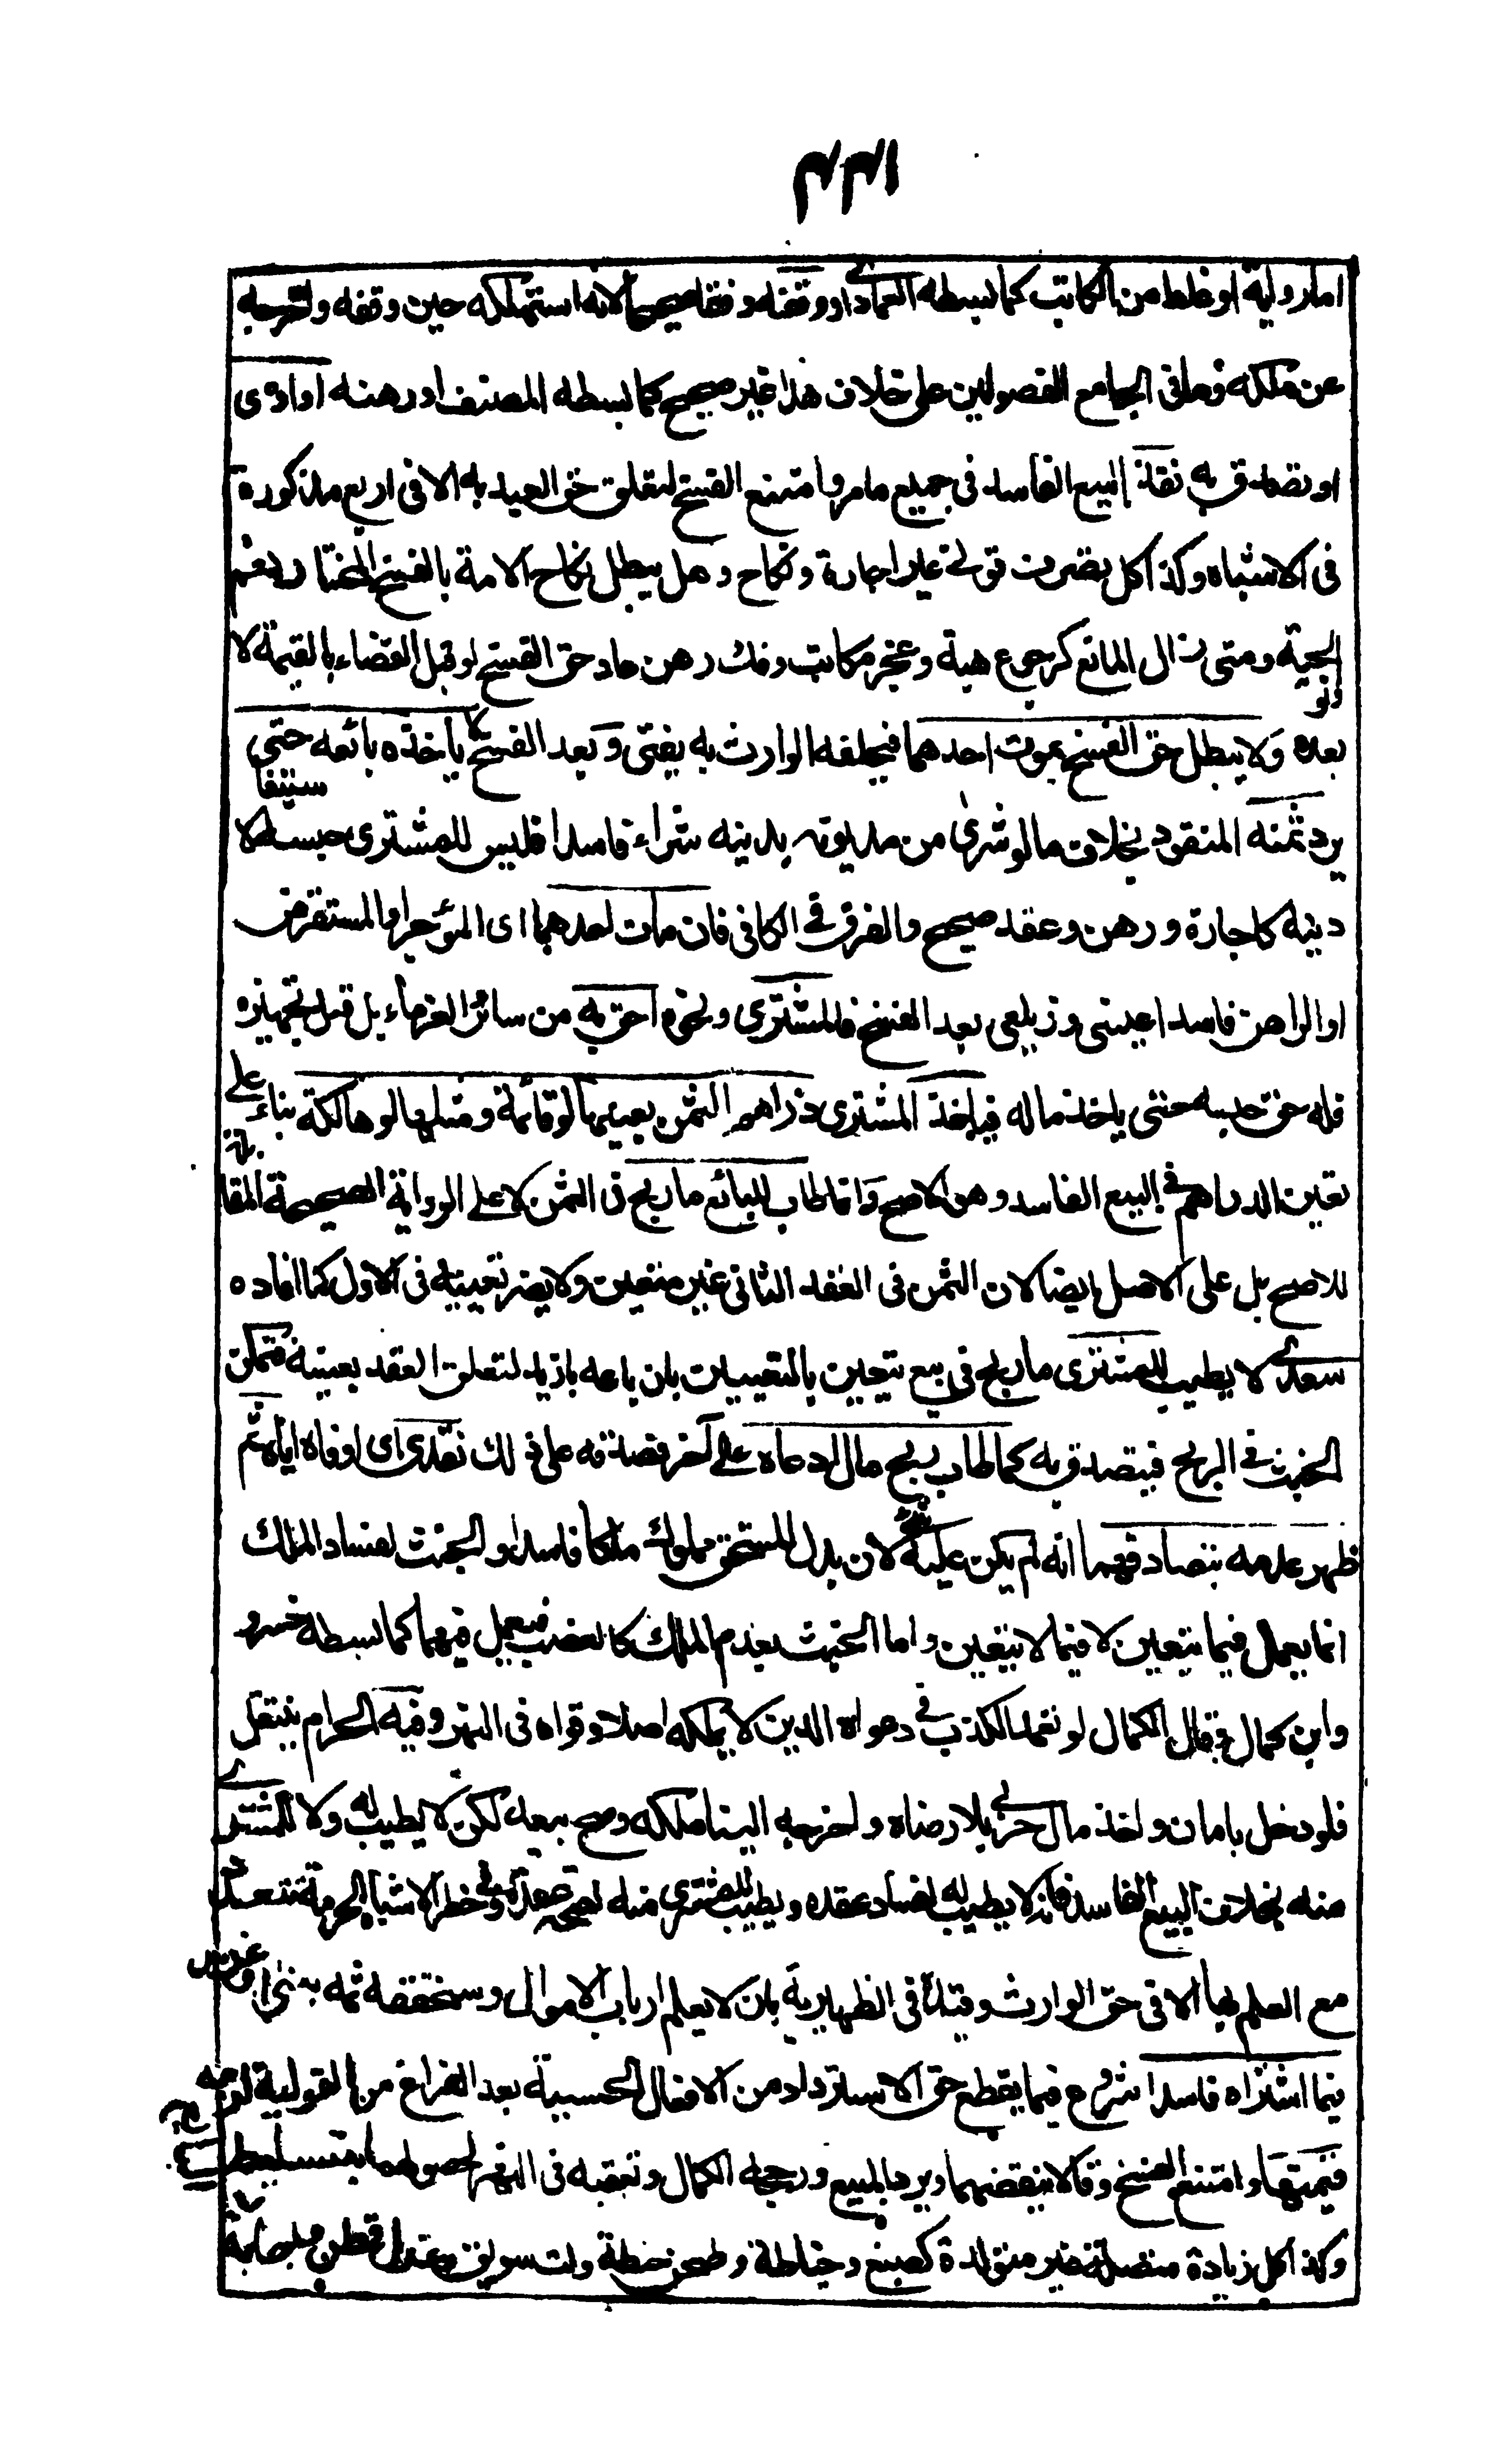 ١٣٣
اما رواية او غلط من الكاتب كما بسطه العمادى او وقفه وقفا صحيحا لانه استهلكه حين وقفه واخرجه
عن ملكه وما فى الجامع الفصولين على خلاف هذا غير صحيح كما بسطه المصنف او رهنه او اوصى
او تصدق به نفذ البيع الفاسد فى جميع ما مر وامتنع الفسخ لتعلق حق العبد به الا فى اربع مذكورة
فى الاشباه وكذا كل تصرف قولى غير اجارة ونكاح وهل يبطل نكاح الامة بالفسخ المختار نعم
الجية ومتى زال المانع كرجوع هبة وعجز مكاتب وفك رهن عاد حق الفسخ لو قبل القضاء بالقيمة لا
بعده ولا يبطل حق الفسخ بموت احدهما فيخلفه الوارث به يفتى وبعد الفسخ لا يأخذه بائعه حتى
يرد ثمنه المنقود بخلاف ما لو شرى من مديونه بدينه شراء فاسدا فليس للمشترى حبسه لاستيفاء
دينه كاجارة ورهن وعقد صحيح والفرق فى الكافى فان مات احدهما اى المؤجر او المستقرض
او الراهن فاسدا عينى وزيلعى بعد الفسخ فالمشترى ونحوه احق به من سائر الغرماء بل قبل تجهيزه
فله حق حبسه حتى يأخذ ماله فيأخذ المشترى دراهم الثمن بعينها لو قائمة ومثلها لو هالكة بناء على
تعين الدراهم فى البيع الفاسد وهو الاصح وانما طاب للبائع ما ربح فى الثمن لا على الرواية الصحيحة المقابلة
للاصح بل على الاصل ايضا لان الثمن فى العقد الثانى غير متعين ولا يضر تعيينه فى الاول كما افاده
سعدى لا يطيب للمشترى ما ربح فى بيع يتعين بالتعيين بان باعه بازيد لتعلق العقد بعينه فتمكن
الخبث فى الربح فيتصدق به كما طاب ربح مال ادعاه على آخر فصدقه على ذلك فقضى اى اوفاه اياه ثم
ظهر عدمه بتصادقهما انه لم يكن عليه شئ لان بدل المستحق مملوك ملكا فاسدا والخبث لفساد الملك
انما يعمل فيما يتعين لا فيما لا يتعين واما الخبث لعدم الملك كالغصب فيعمل فيهما كما بسطه خسرو
وابن كمال وقال الكمال لو تعمد الكذب فى دعواه الدين لا يملكه اصلا وقواه فى النهر وفيه الحرام ينتقل
فلو دخل بامان واخذ مال حربى بلا رضاه واخرجه الينا ملكه وصح بيعه لكن لا يطيب له ولا للمشترى
منه بخلاف البيع الفاسد فانه لا يطيب له لفساد عقده ويطيب للمشترى منه لصحة عقده وفى حظر الاشباه الحرمة تتعدد
مع العلم بها الا فى حق الوارث وقيده فى الظهيرية بان لا يعلم ارباب الاموال وسنحققه ثمه بنى او غرس
فيما اشتراه فاسدا شروع فيما يقطع حق الاسترداد من الافعال الحسية بعد الفراغ من القولية لزمه
قيمتهما وامتنع الفسخ وقالا ينقضهما ويرد المبيع ورجحه الكمال وتعقبه فى النهر لحصولهما بتسليط
وكذا كل زيادة متصلة غير متولدة كصبغ وخياطة وطحن حنطة ولت سويق وغزل قطن وجارية